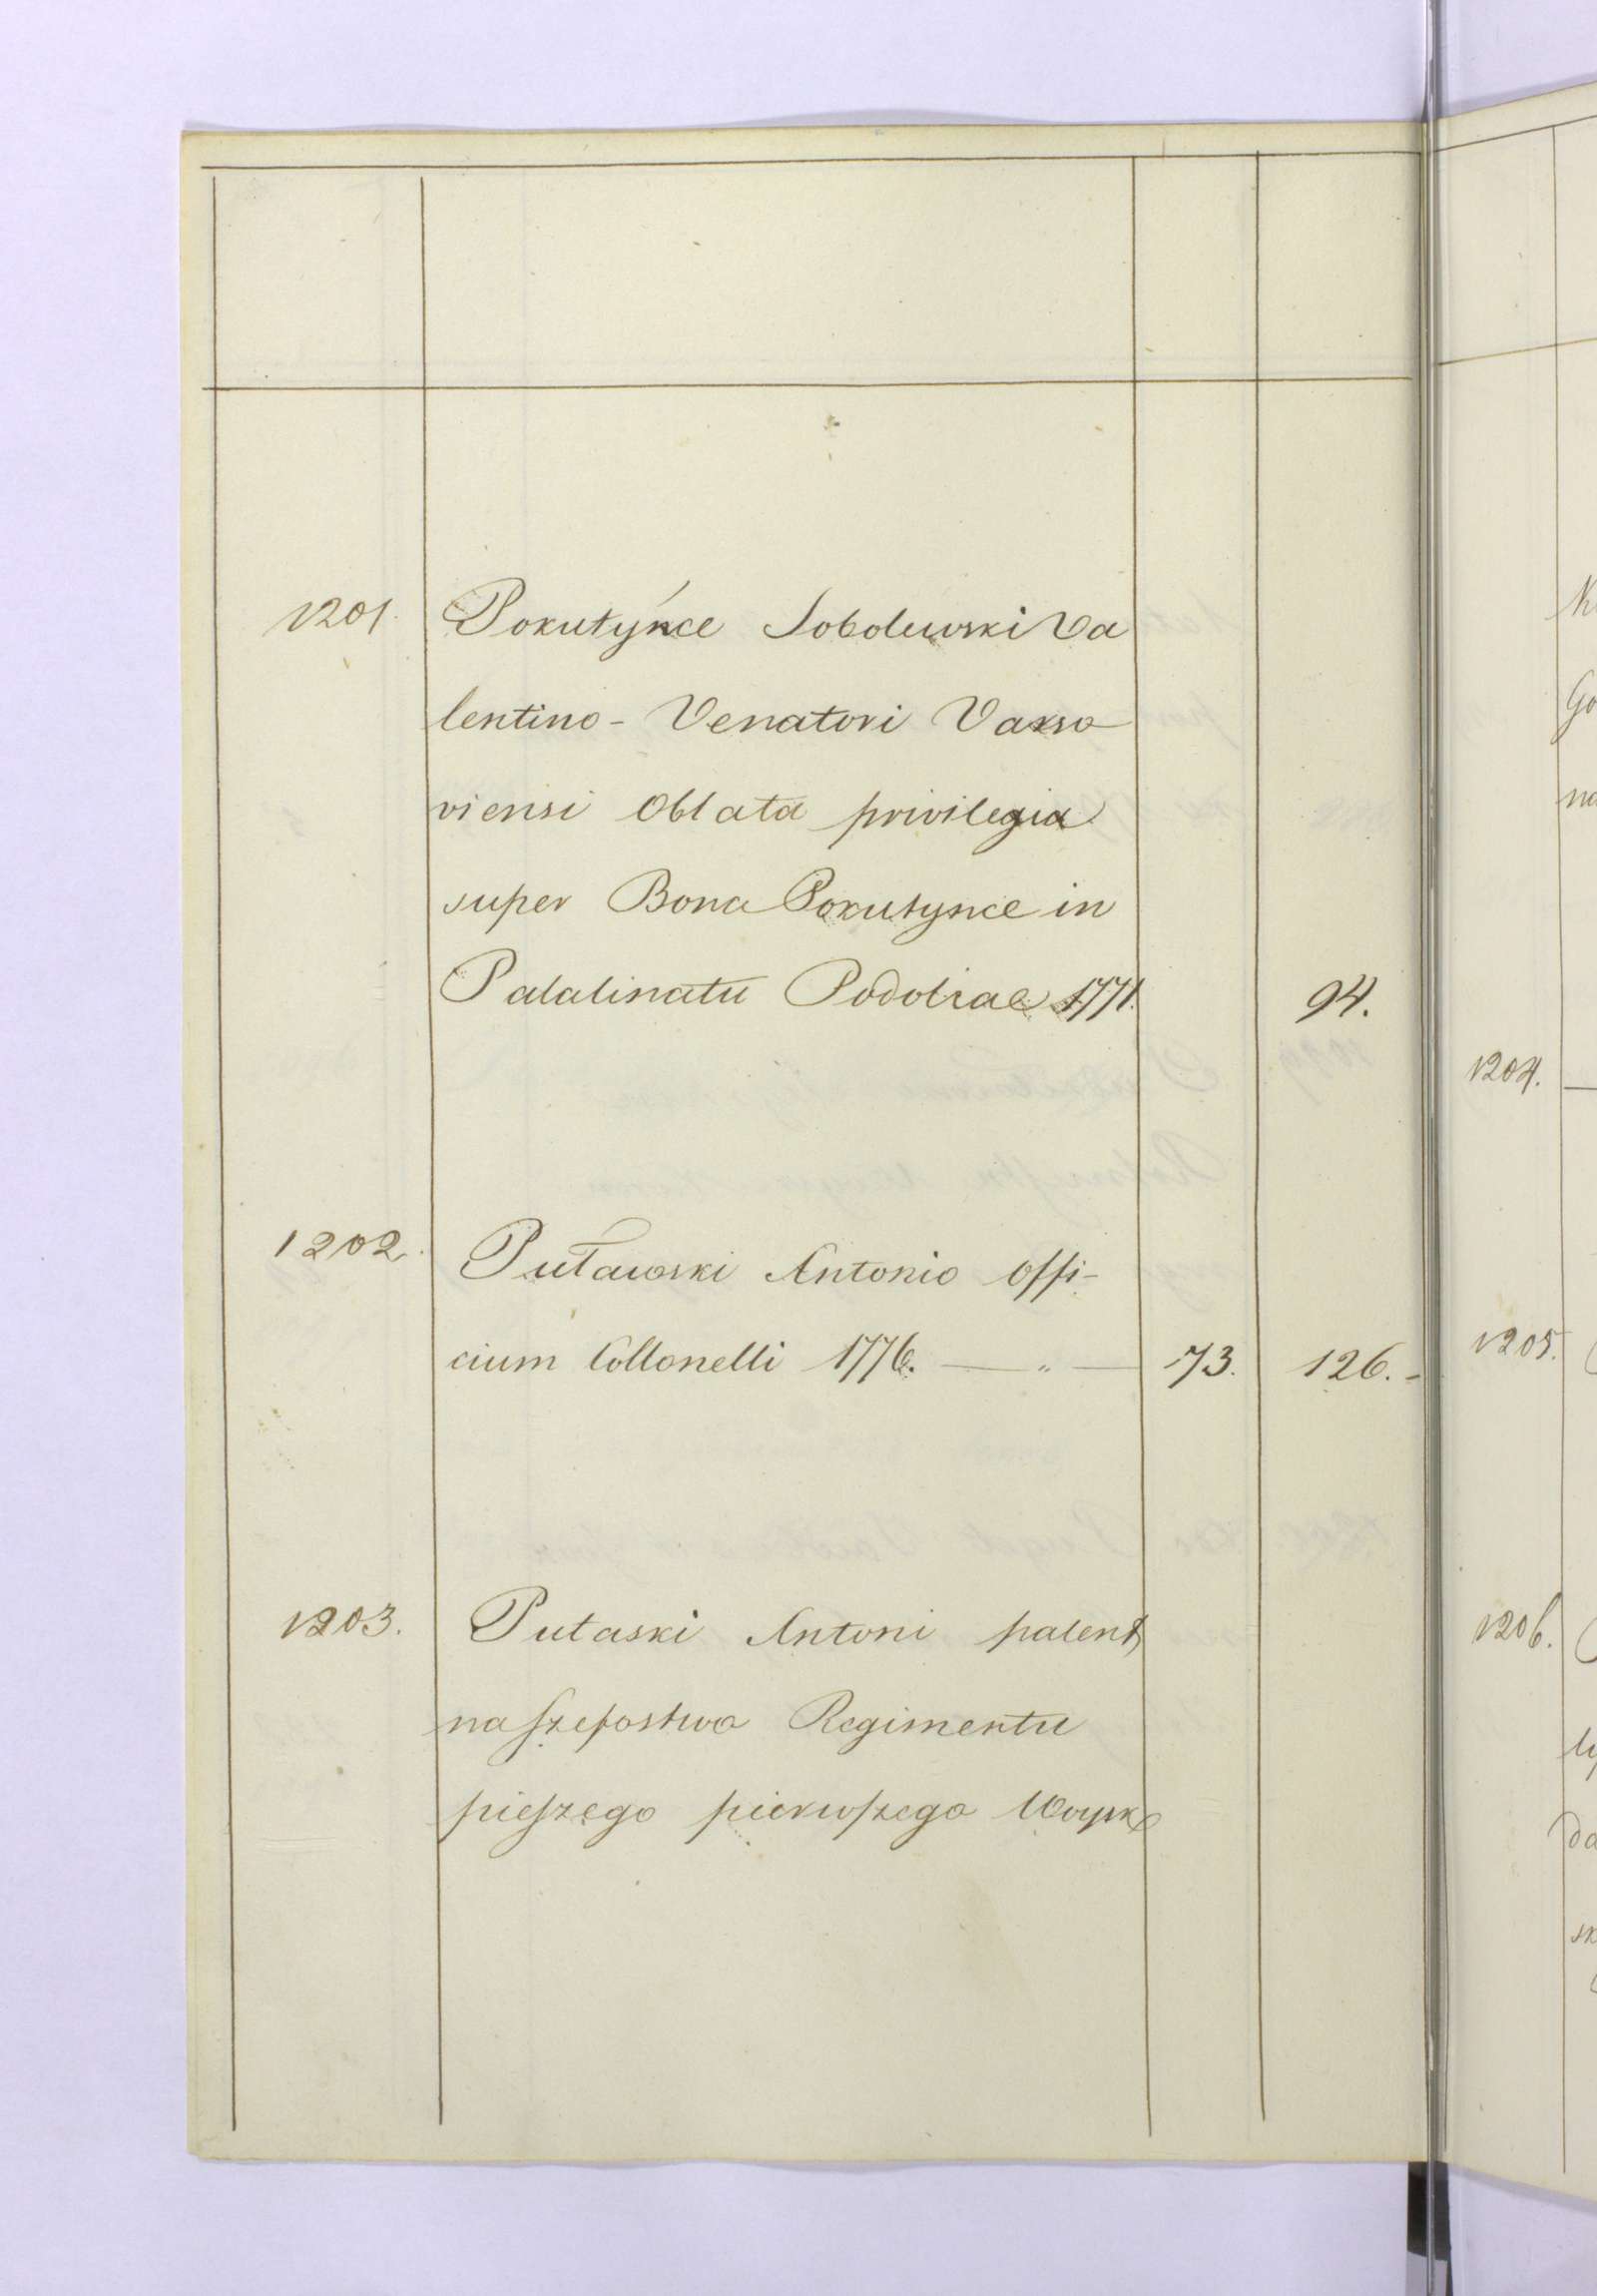 1201. Pokutyńce Sobolewski Va
lentino - Venatori Varso
viensi Oblata privilegia
super Bona Pokutynce in
Palatinatu Podoliae 1771. 94.
1202. Puławski Antonio offi-
cium Collonelli 1776. — " — 73. 126. -
1203. Pułaski Antoni patent
na szefostwo Regimentu
pieszego pierwszego Woysk
1204.
1205.
1206.